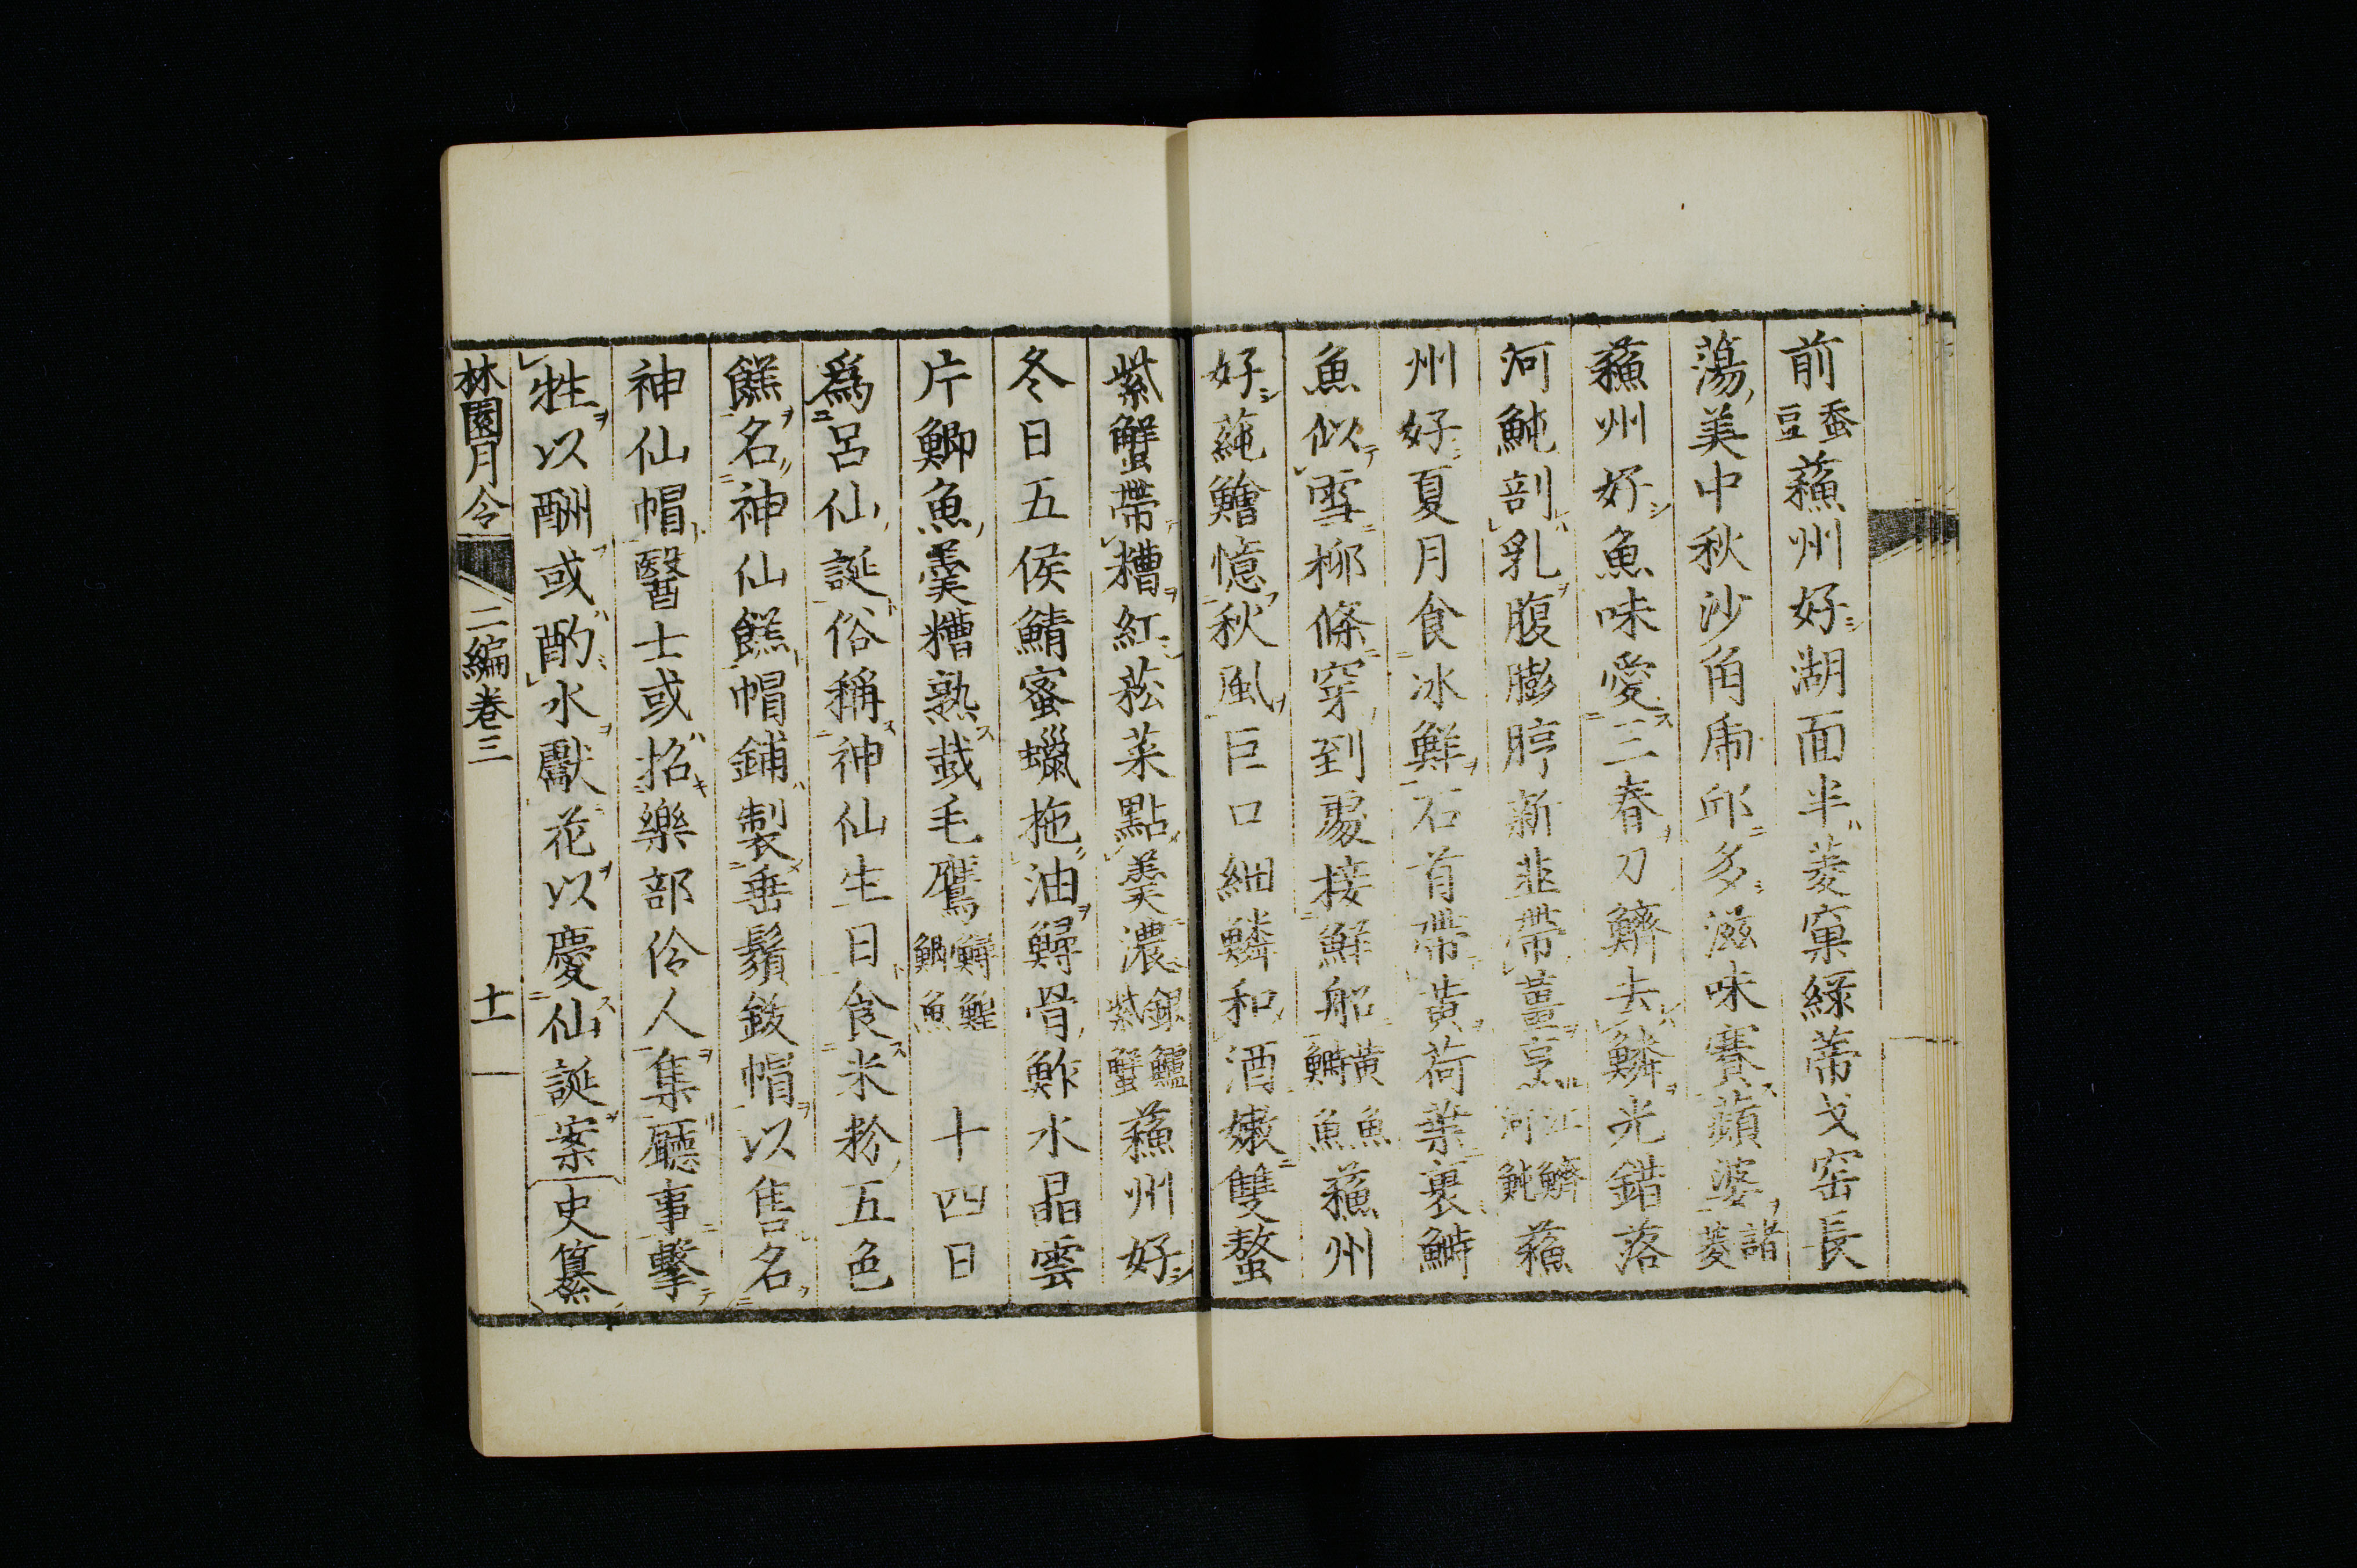 前蚕豆蘓州好湖面半菱窠緑蒂戈窑長
蕩美中秋沙角虎邱多滋味賽蘋婆諸菱
蘓州好魚味愛三春刀鱭去鱗光錯落
河魨剖乳腹膨脝新韭帶薑烹江鱭河魨蘓
州好夏月食冰鮮石首帶黃荷葉裹鰣
魚似雪栁條穿到處接鮮船黃魚鰣魚蘓州
好蓴鱠憶秋風巨口細鱗和酒嫩雙螯
紫蟹帶糟紅菘菜點羹濃銀鱸紫蟹蘓州好
冬日五侯鯖蜜蠟拖油鱘骨鮓水晶雲
片鯽魚羹糟熟蓺毛鷹鱘鮓鯽魚 十四日
爲呂仙誕俗稱神仙生日食米粉五色
餻名神仙餻帽鋪製垂鬚鈸帽以售名
神仙帽醫士或招樂部伶人集廳事擊
牲以酬或酌水獻花以慶仙誕案史纂
林園月令 二編卷三 十一